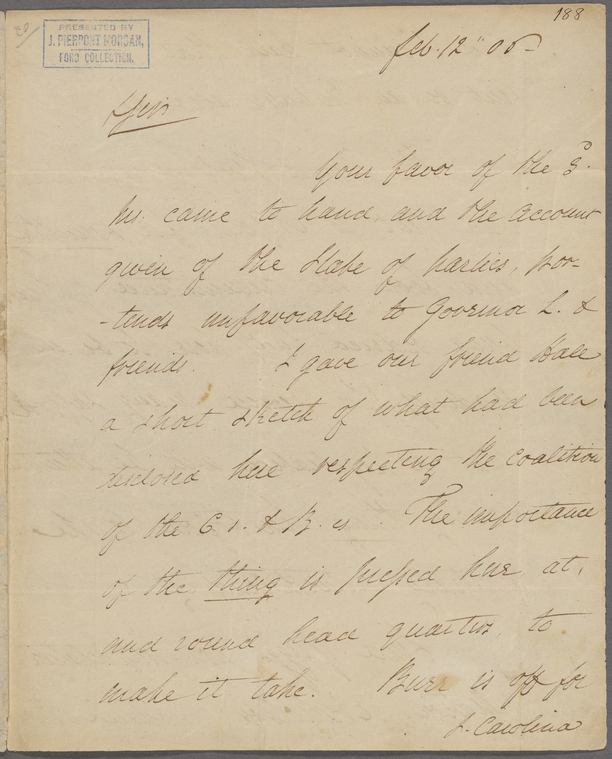 188
PRESENTED BY
J. PIERPONT MORGAN,
FORD COLLECTION.
Feb. 12" 06
Sir
Your favor of the 3d.
Int. came to hand, and the account
given of the State of parties, por-
-tends unfavorable to Governor L. &
friends. I gave our friend Hale
a short sketch of what had been
disclosed here respecting the coalition
of the C s. & B. s. The importance
of the thing is pressed here at,
and round head quarters, to
make it take. Burr is off for
S. Carolina